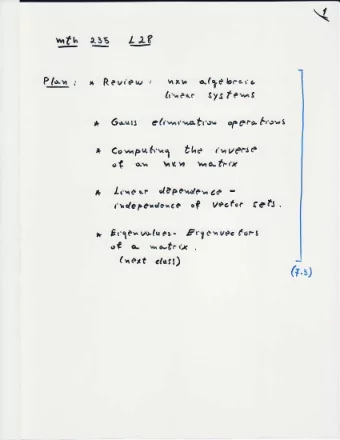 1
mth 235 L28
Plan: * Review: nxn algebraic
linear systems
* Gauss elimination operations
* Computing the inverse
of an nxn matrix
* Linear dependence -
independence of vector sets.
* Eigenvalues - Eigenvectors
of a matrix.
(next class)
(7.3)